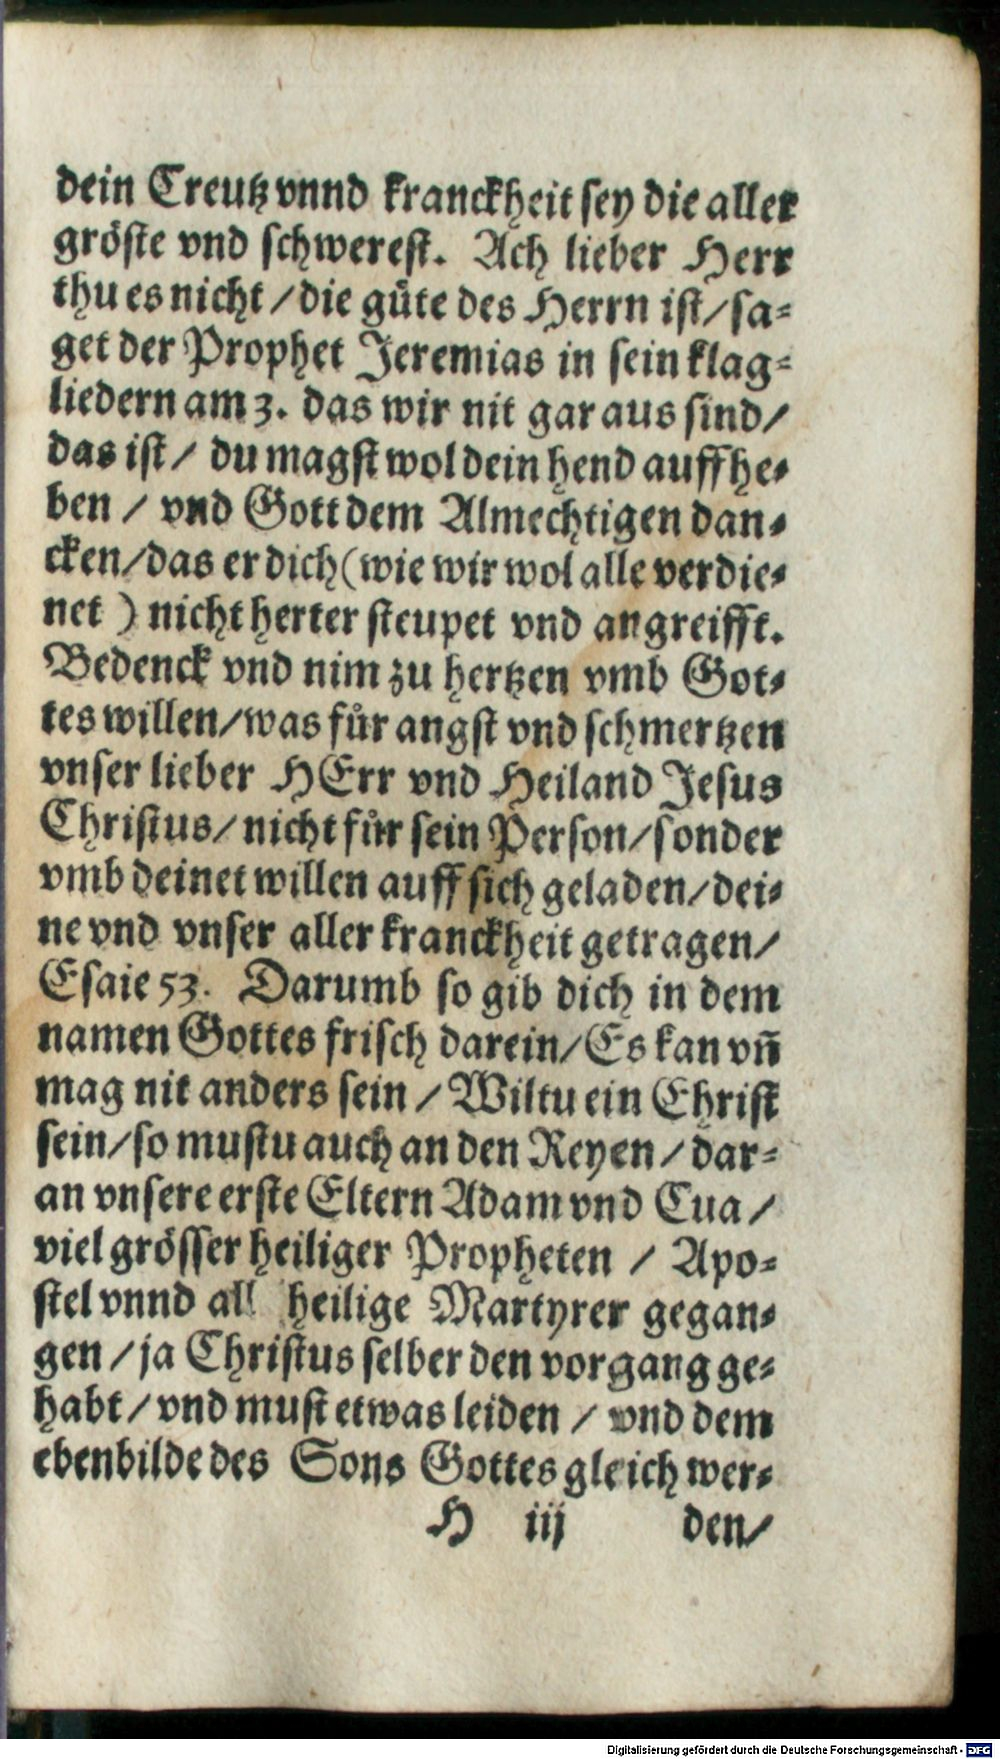 dein Creutz vnnd kranckheit sey die aller
gröste vnd schwerest. Ach lieber Herr
thu es nicht / die güte des Herrn ist / sa-
get der Prophet Jeremias in sein klag-
liedern am 3. das wir nit gar aus sind /
das ist / du magst wol dein hend auff he-
ben / vnd Gott dem Almechtigen dan-
cken / das er dich (wie wir wol alle verdie-
net ) nicht herter steupet vnd angreifft.
Bedenck vnd nim zu hertzen vmb Got-
tes willen / was für angst vnd schmertzen
vnser lieber HErr vnd Heiland Jesus
Christus / nicht für sein Person / sonder
vmb deinet willen auff sich geladen / dei-
ne vnd vnser aller kranckheit getragen /
Esaie 53. Darumb so gib dich in dem
namen Gottes frisch darein / Es kan vñ
mag nit anders sein / Wiltu ein Christ
sein / so mustu auch an den Reyen / dar-
an vnsere erste Eltern Adam vnd Eua /
viel grösser heiliger Propheten / Apo-
stel vnnd all heilige Martyrer gegan-
gen / ja Christus selber den vorgang ge-
habt / vnd must etwas leiden / vnd dem
ebenbilde des Sons Gottes gleich wer-
H iij den /
Digitalisierung gefördert durch die Deutsche Forschungsgemeinschaft - DFG